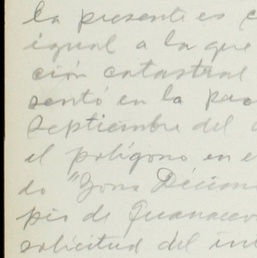 la presente es c
igual a la que
ción catastral
sentó en la pas
septiembre del a
el polígono en e
do "Zona Décima
pio de Guanacev
solicitud del in